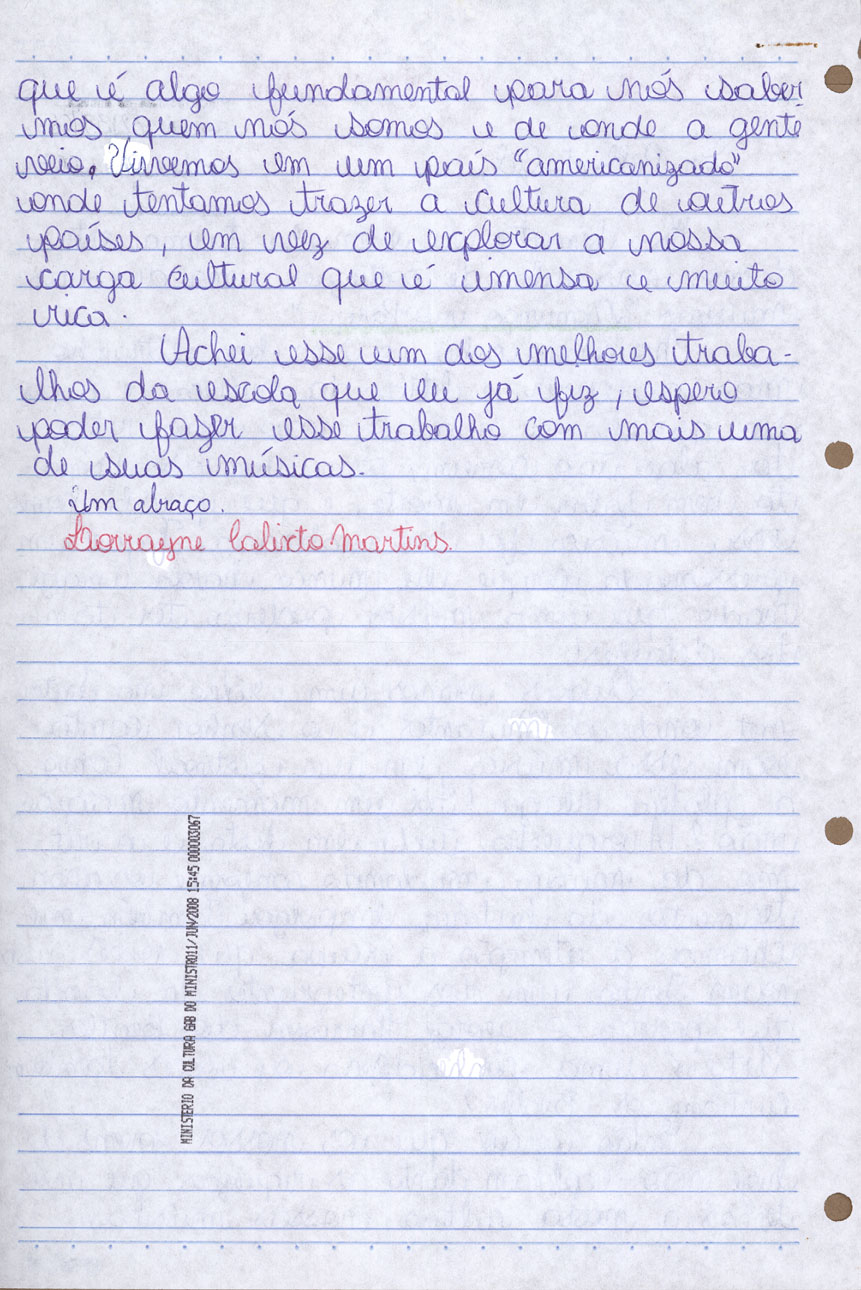 que é algo fundamental para nós saber
mos quem nós somos e de onde a gente
veio. Vivemos em um país "americanizado"
onde tentamos trazer a cultura de outros
países, em vez de explorar a nossa
carga cultural que é imensa e muito
rica.
Achei esse um dos melhores traba-
lhos da escola que eu já fiz, espero
poder fazer esse trabalho com mais uma
de suas músicas.
Um abraço.
Lorrayne Calixto Martins.
MINISTERIO DA CULTURA GAB DO MINISTRO11/JUN/2008 15:45 000003067